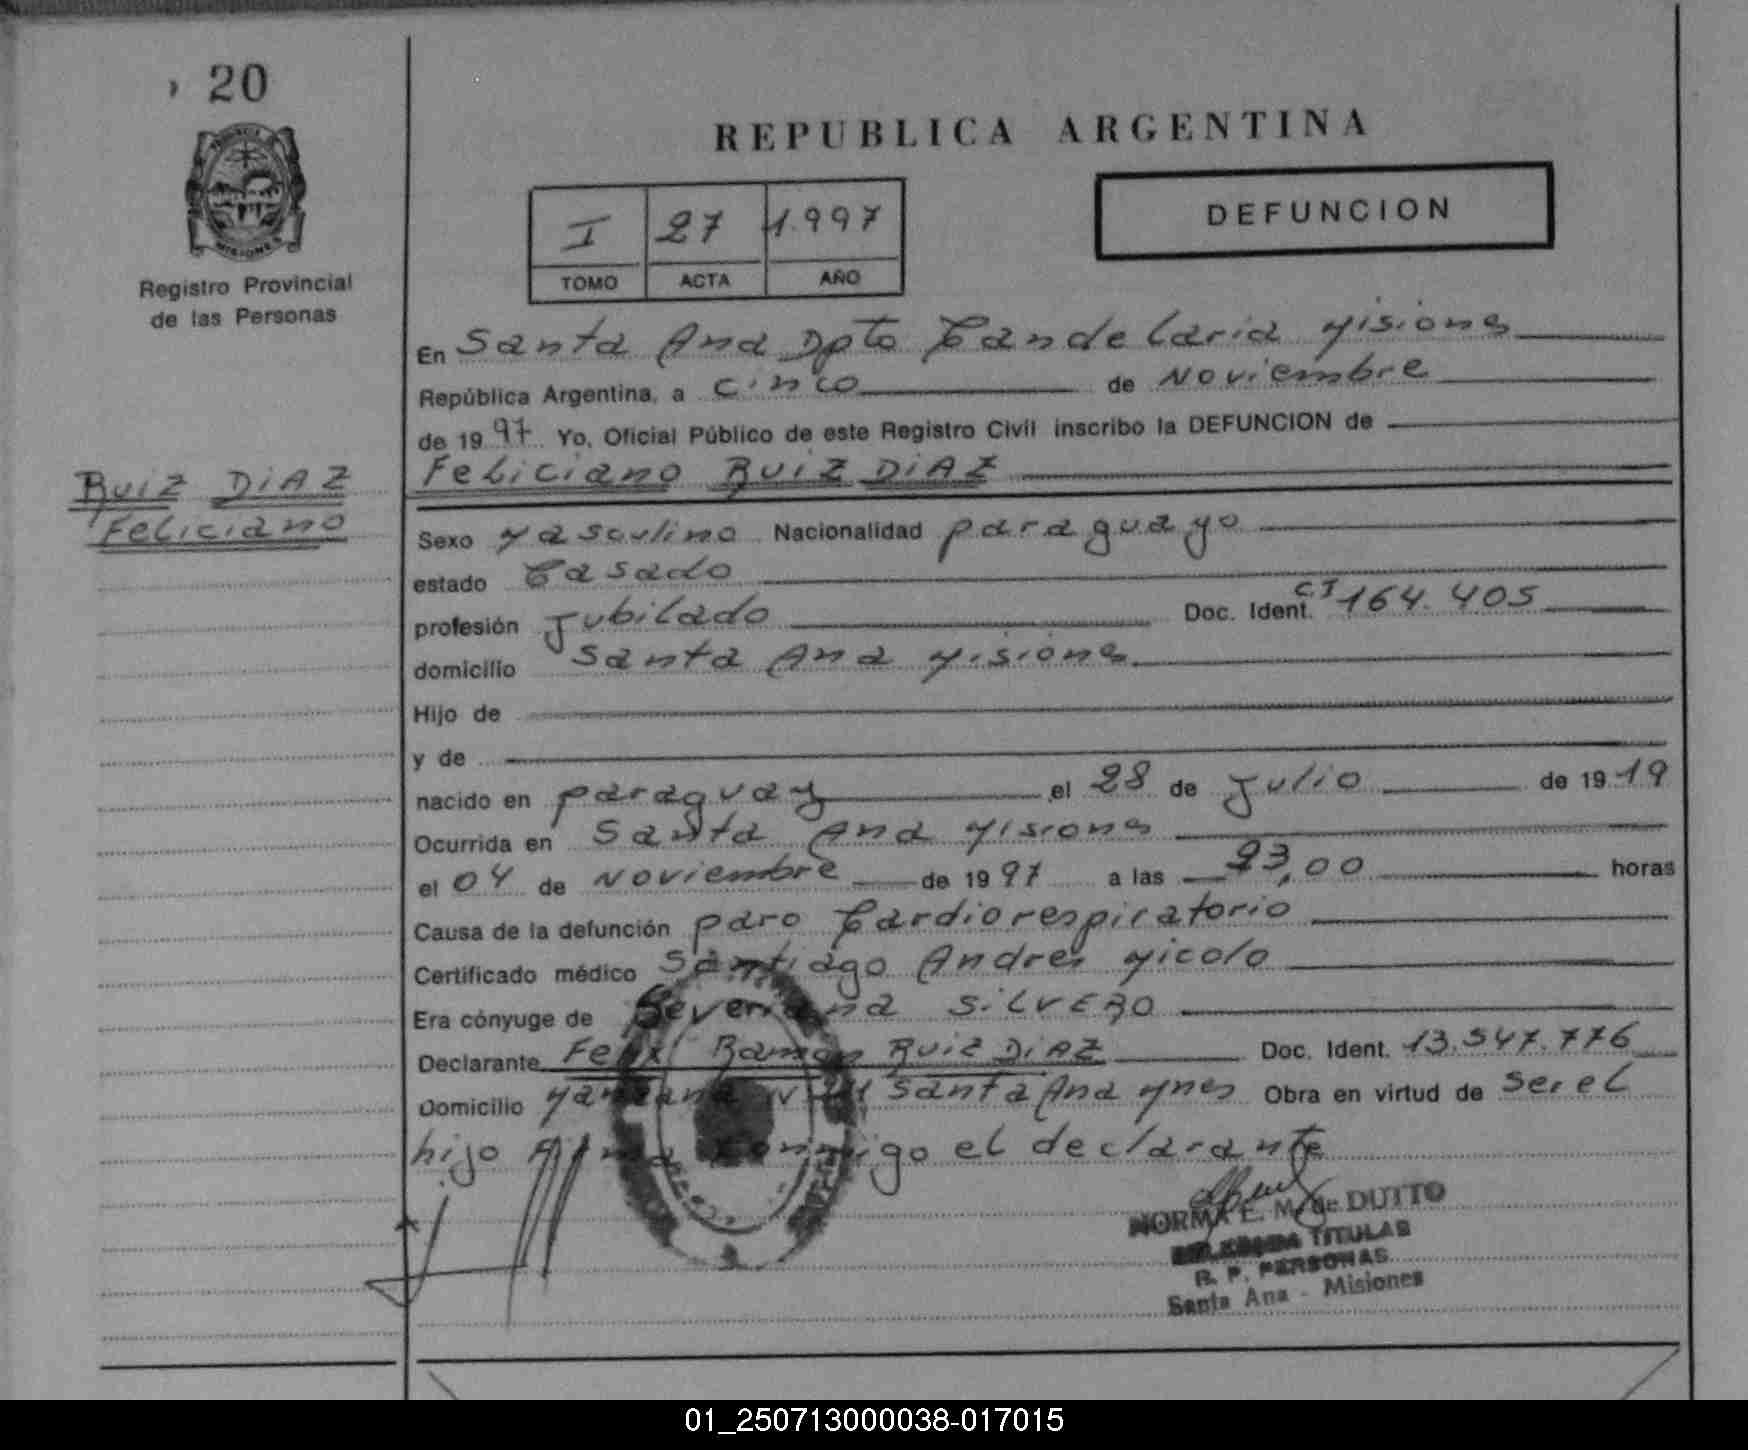 20
REPUBLICA ARGENTINA
DEFUNCION
I 27 1.997
TOMO ACTA AÑO
MISIONES
Registro Provincial
de las Personas
En Santa Ana Dpto Candelaria Misiones
República Argentina, a cinco de Noviembre
de 1997 Yo, Oficial Público de este Registro Civil inscribo la DEFUNCION de
Feliciano RUIZ DIAZ
RUIZ DIAZ
Feliciano
Sexo Masculino Nacionalidad paraguayo
estado Casado
profesión Jubilado Doc. Ident. CI 164.405
domicilio Santa Ana Misiones
Hijo de
y de
nacido en paraguay el 28 de Julio de 1919
Ocurrida en Santa Ana Misiones
el 04 de Noviembre de 1997 a las 23,00 horas
Causa de la defunción paro Cardiorespiratorio
Certificado médico Santiago Andres Micolo
Era cónyuge de Severiana SILVERO
Declarante Felix Ramon Ruiz DIAZ Doc. Ident. 13.547.776
Domicilio Manzana Santa Ana Mnes Obra en virtud de ser el
hijo Firma conmigo el declarante
NORMA E. M. de DUTTO
TITULAR
R. P. PERSONAS
Santa Ana - Misiones
01_250713000038-017015